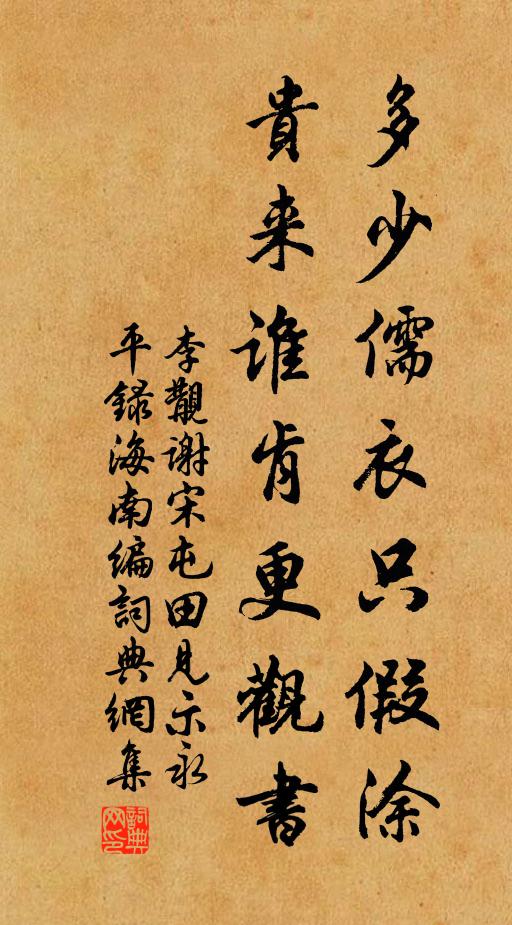 多少儒衣只假涂
貴来誰肯更觀書
李覯謝宋屯田見示永
平録海南編詞典網集
詞典网印